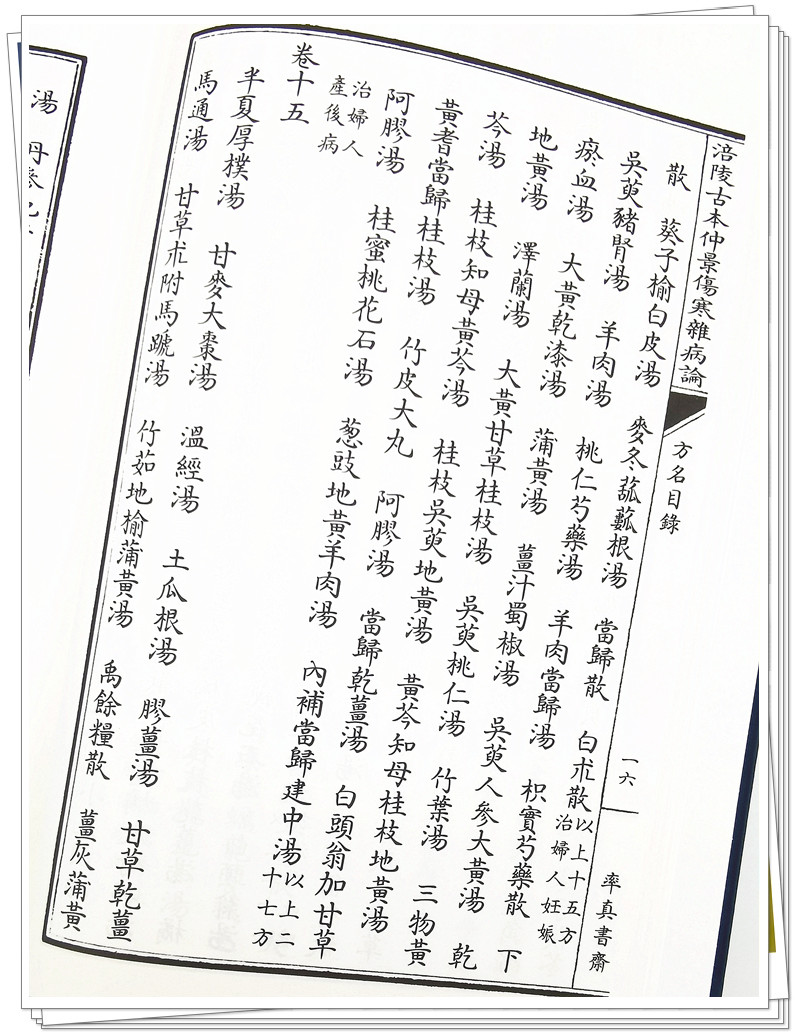 涪陵古本仲景傷寒雜病論 方名目錄 一六 率真書齋
散 葵子榆白皮湯 麥冬根湯 當歸散 白朮散 以上十五方
治婦人妊娠
吳萸豬腎湯 羊肉湯 桃仁芍藥湯 羊肉當歸湯 枳實芍藥散 下
瘀血湯 大黃乾漆湯 蒲黃湯 薑汁蜀椒湯 吳萸人參大黃湯 乾
地黃湯 澤蘭湯 大黃甘草桂枝湯 吳萸桃仁湯 竹葉湯 三物黃
芩湯 桂枝知母黃芩湯 桂枝吳萸地黃湯 黃芩知母桂枝地黃湯
黃耆當歸桂枝湯 竹皮大丸 阿膠湯 當歸乾薑湯 白頭翁加甘草
阿膠湯 桂蜜桃花石湯 葱豉地黃羊肉湯 內補當歸建中湯 以上二
十七方
治婦人
產後病
卷十五
半夏厚樸湯 甘麥大棗湯 溫經湯 土瓜根湯 膠薑湯 甘草乾薑
馬通湯 甘草朮附馬蹏湯 竹茹地榆蒲黃湯 禹餘糧散 薑灰蒲黃
湯